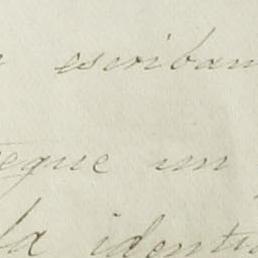 escriban
egue un
la identi